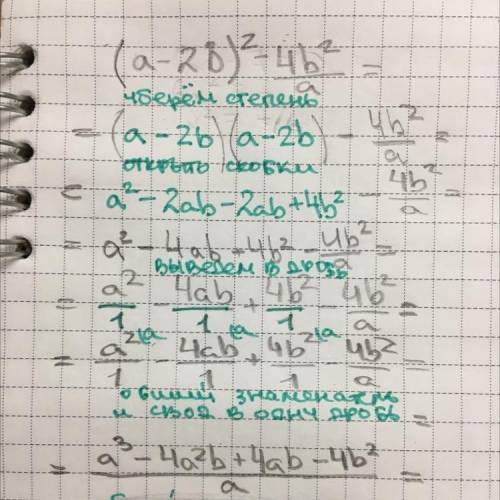 (a - 2b)² - 4b²/a =
уберём степень
= (a - 2b)(a - 2b) - 4b²/a =
открыть скобки
= a² - 2ab - 2ab + 4b² - 4b²/a =
= a² - 4ab + 4b² - 4b²/a =
выведем в дробь
= a²/1 - 4ab/1 + 4b²/1 - 4b²/a =
= a²\a/1 - 4ab\a/1 + 4b²\a/1 - 4b²/a
общий знаменатель
и свод в одну дробь =
= (a³ - 4a²b + 4ab - 4b²)/a =